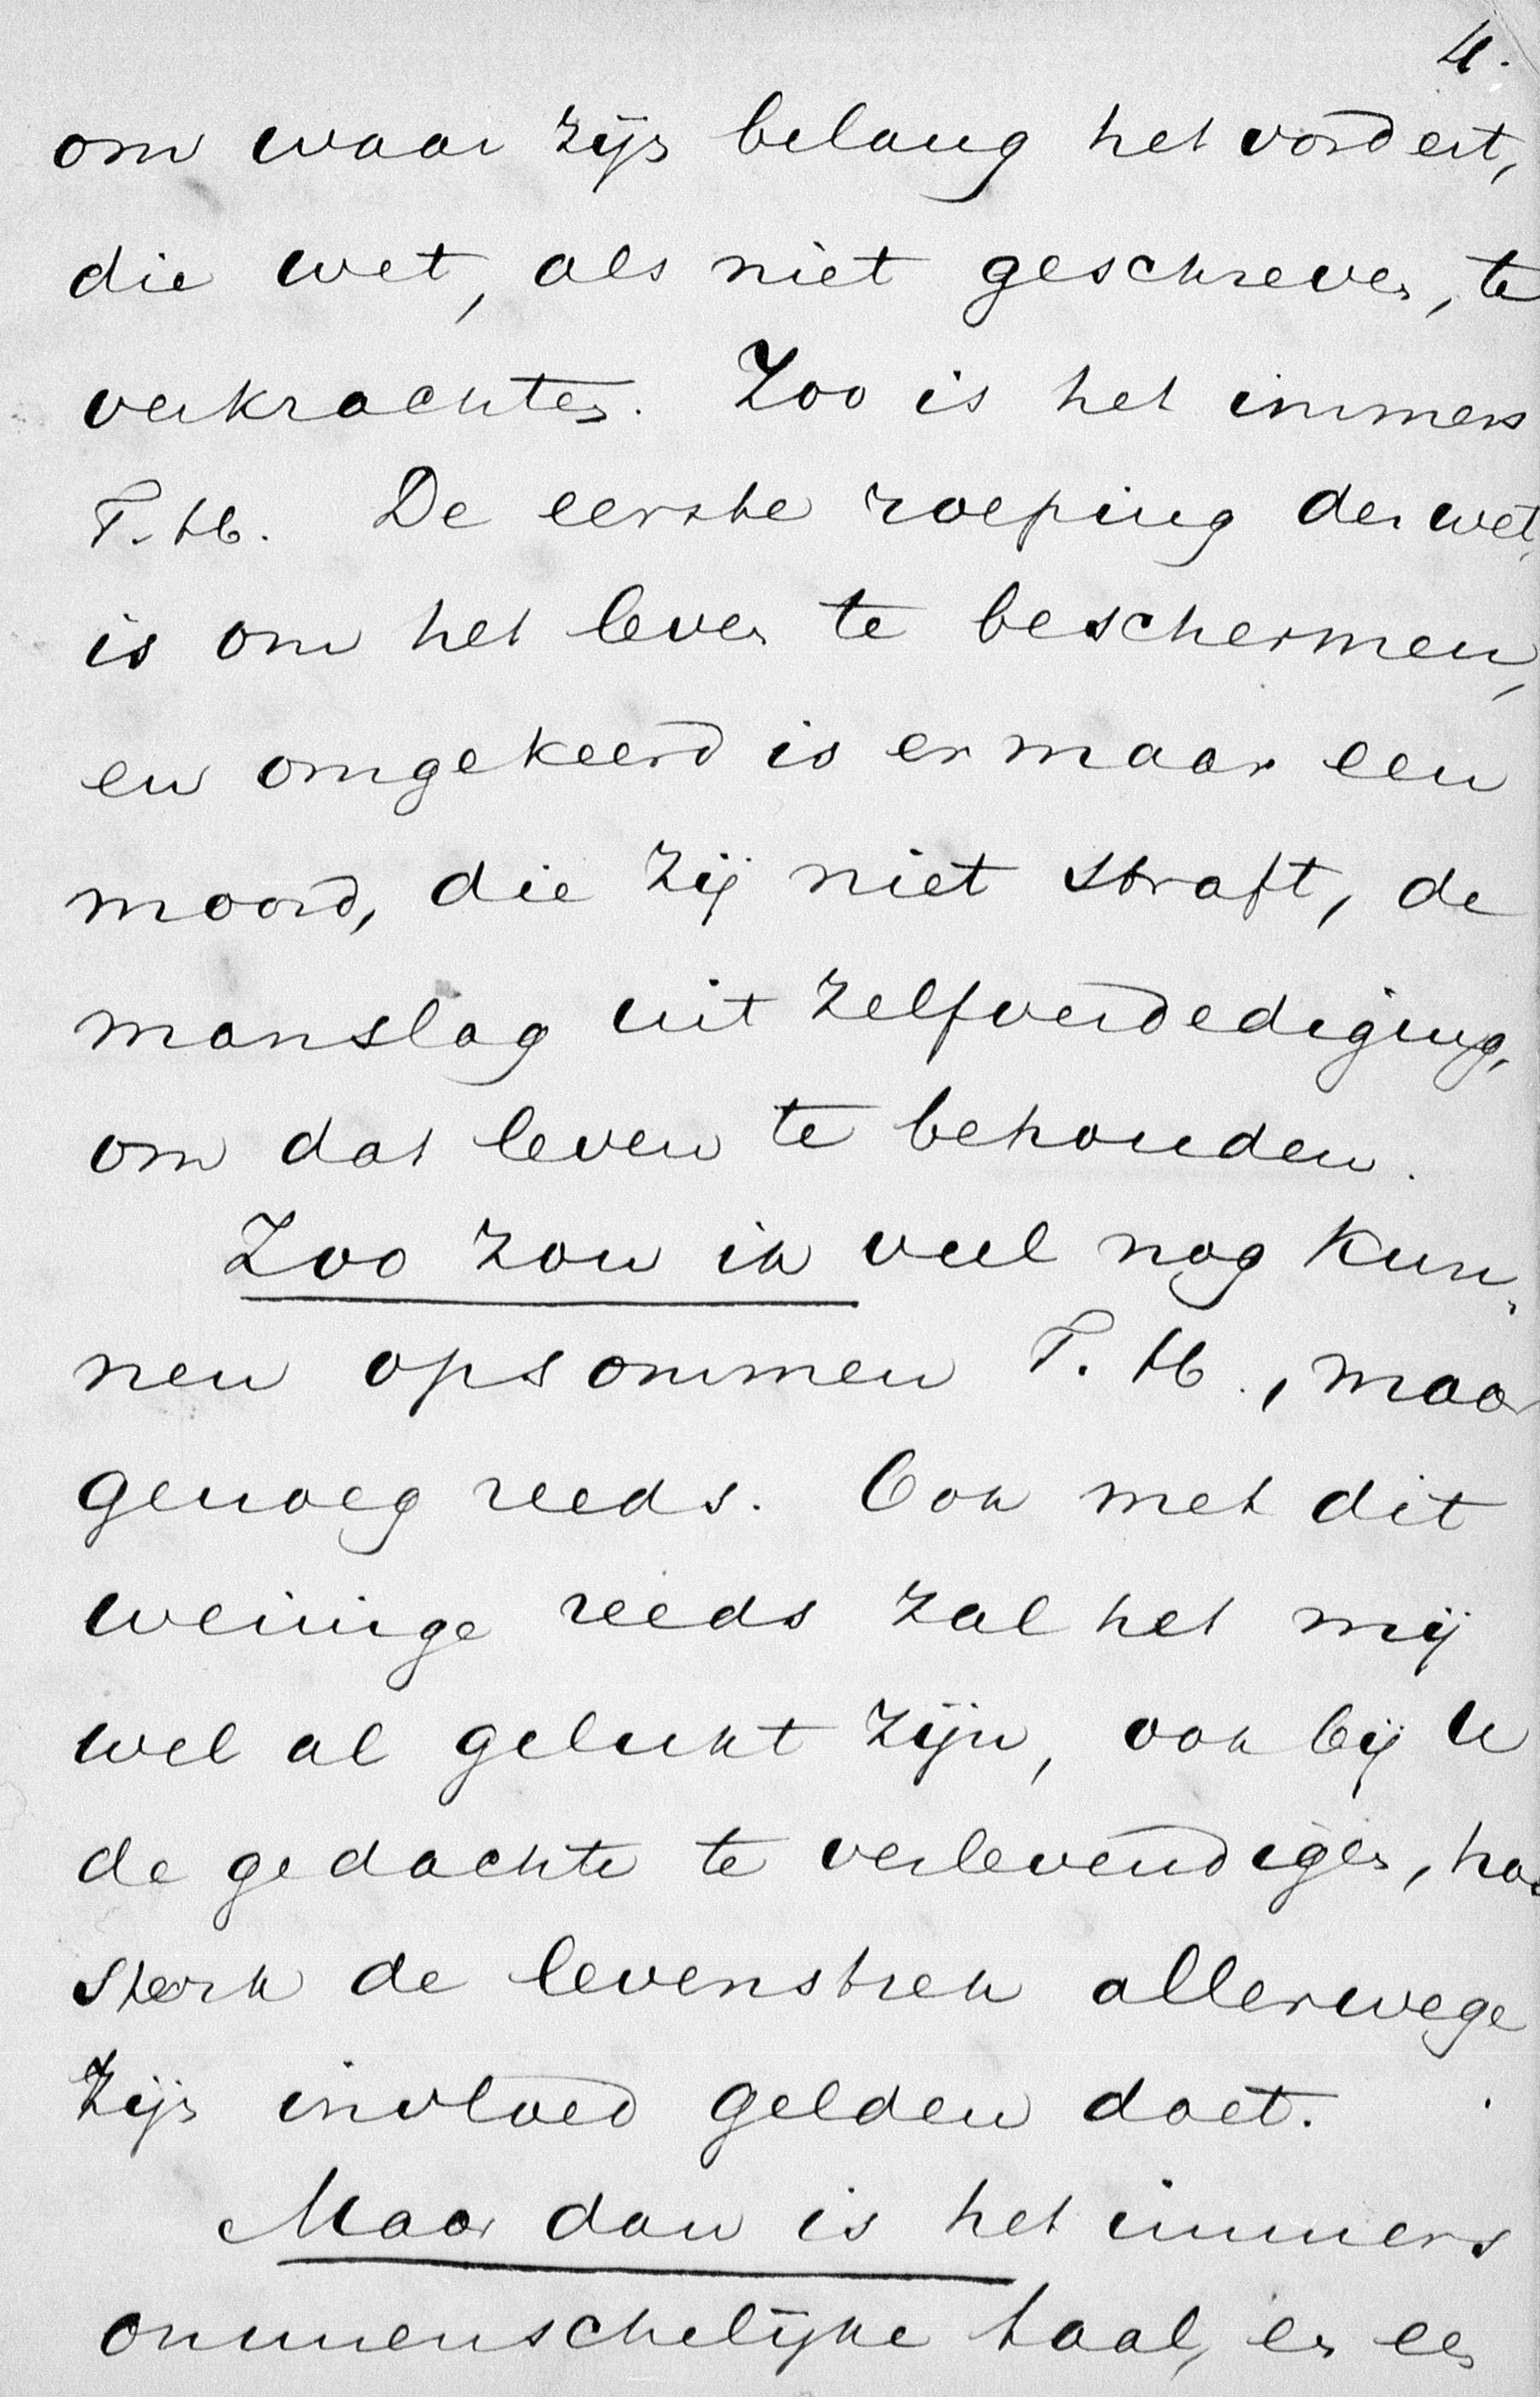 4.
om waar zijn belang het vordert,
die wet, als niet geschreven, te
verkrachten. Zoo is het immers
T. H. De eerste roeping der wet,
is om het leven te beschermen,
en omgekeerd is er maar een
moord, die zij niet straft, de
manslag uit zelfverdediging,
om dat leven te behouden.
Zoo zou ik veel nog kun,
nen opsommen T. H., maar
genoeg reeds. Ook met dit
weinige reeds zal het mij
wel al gelukt zijn, ook bij U
de gedachte te verlevendigen, hoe
sterk de levenstrek allerwege
zijn invloed gelden doet.
Maar dan is het immers
onmenschelijke taal, en een